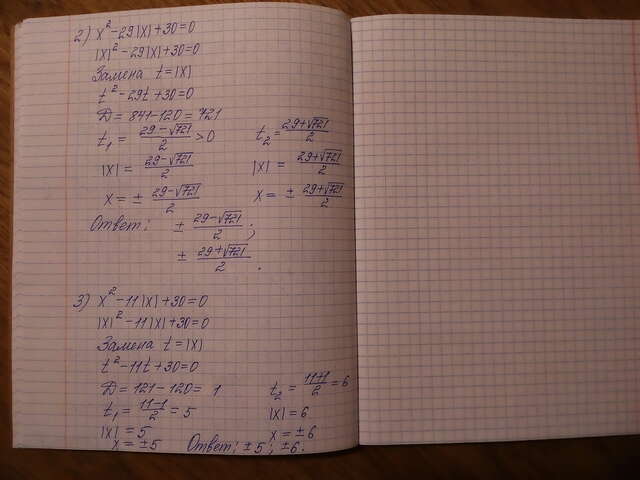 2) x² - 29|x| + 30 = 0
|x|² - 29|x| + 30 = 0
Замена t = |x|
t² - 29t + 30 = 0
D = 841 - 120 = 721
t₁ = (29 - √721)/2 > 0 t₂ = (29 + √721)/2
|x| = (29 - √721)/2 |x| = (29 + √721)/2
x = ± (29 - √721)/2 x = ± (29 + √721)/2
Ответ: ± (29 - √721)/2 ;
± (29 + √721)/2 .
3) x² - 11|x| + 30 = 0
|x|² - 11|x| + 30 = 0
Замена t = |x|
t² - 11t + 30 = 0
D = 121 - 120 = 1 t₂ = (11+1)/2 = 6
t₁ = (11-1)/2 = 5 |x| = 6
|x| = 5 x = ±6
x = ±5 Ответ: ±5; ±6.